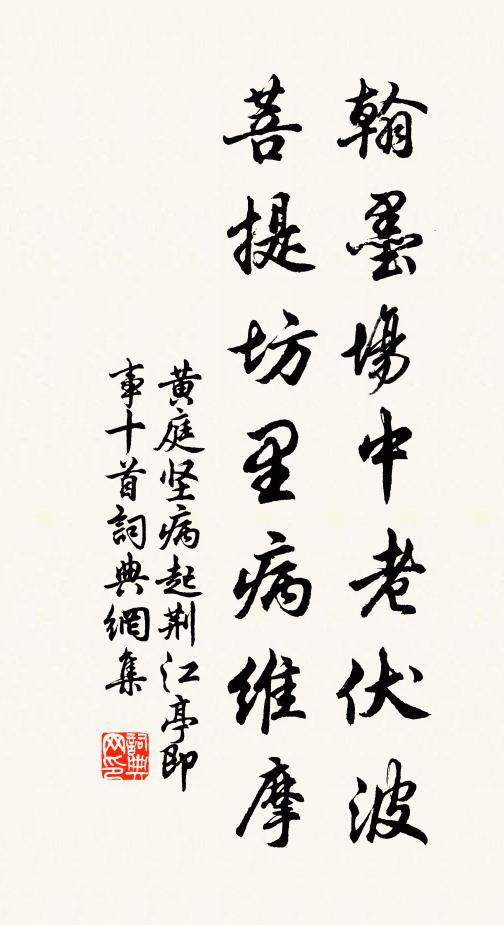 翰墨場中老伏波
菩提坊里病維摩
黄庭坚病起荆江亭即
事十首詞典網集
詞典
网印